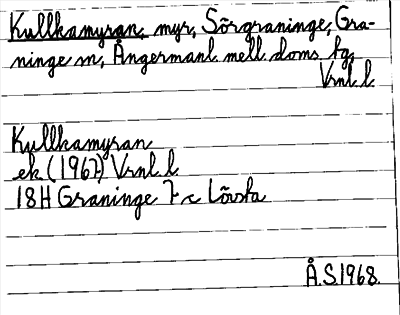 Kullkamyran, myr, Sörgraninge, Gra-
ninge sn, Ångermanl. mell. doms. tg,
Vrnl. l.
Kullkamyran
ek (1967) Vrnl. l.
18H Graninge 7 c Lövsta
Å.S. 1968.